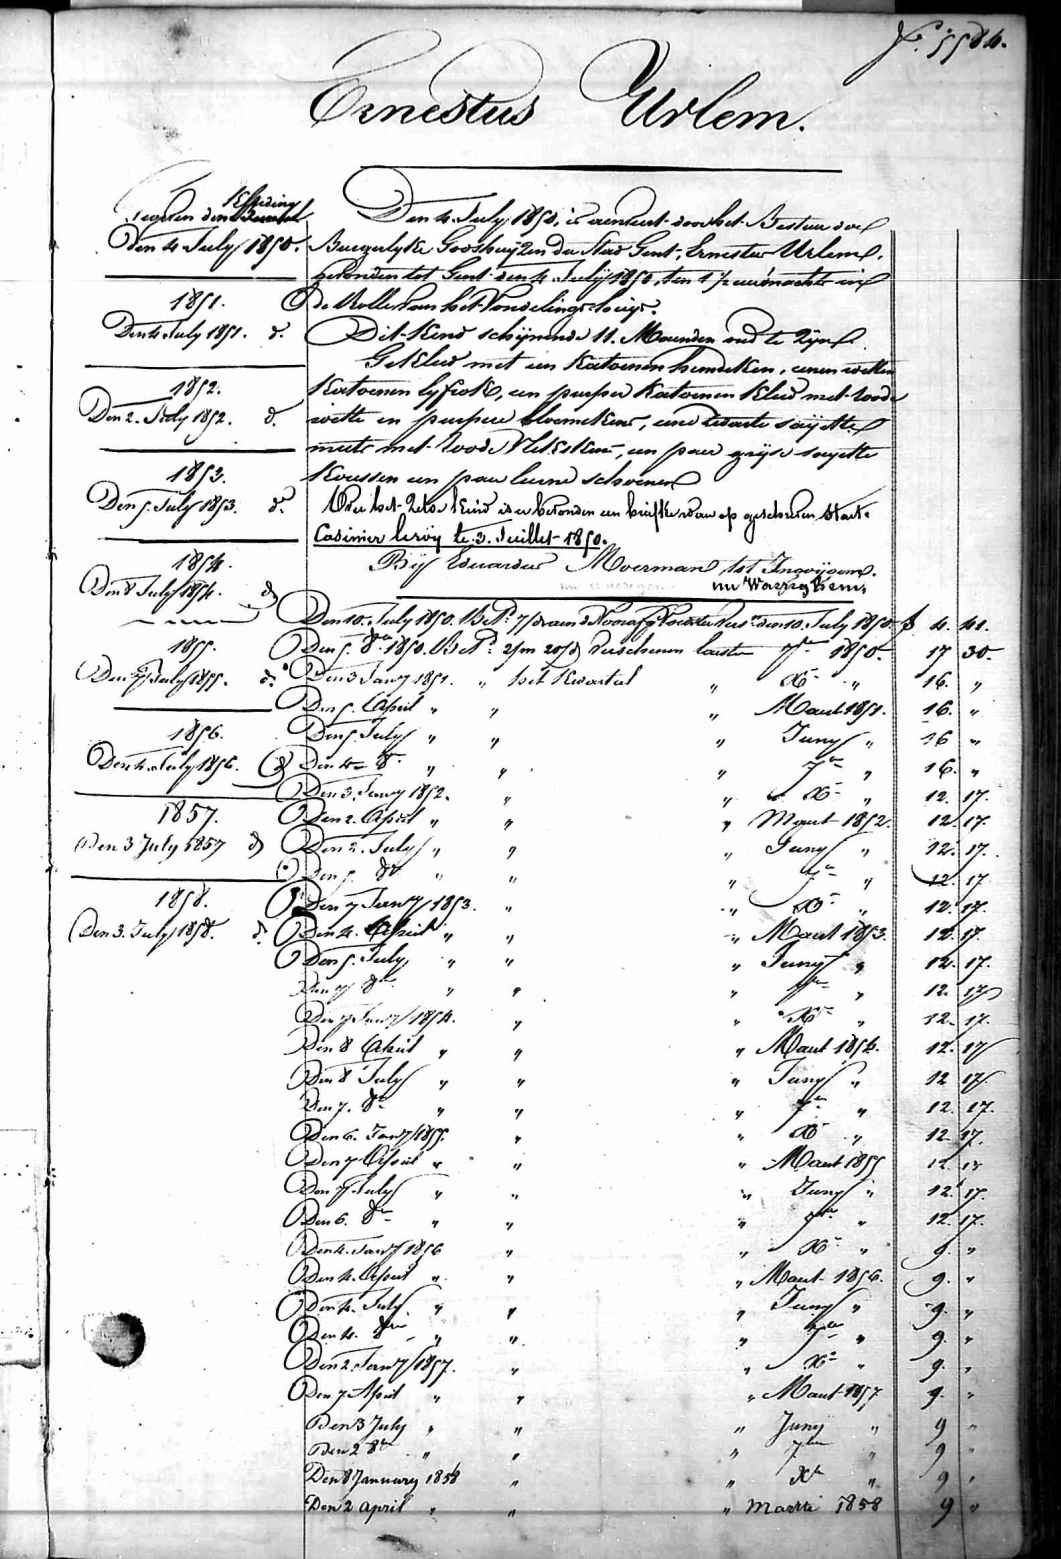 N.º 5584.
Ernestus Urlem.
Kleeding
den
Den 4 July 1850.
1851.
Den 4 July 1851. d.
1852.
Den 2. July 1852. d.
1853.
Den 5. July 1853. d.
1854.
Den 8 July 1854. d
1855.
Den 7 July 1855. d.
1856.
Den 4. July 1856. d
1857.
Den 3 July 1857 d
1858.
Den 3. July 1858. d.
Den 4 July 1850, is door het Bestuer der
Burgerlyke Godshuyzen der Stad Gent, Ernestus Urlem,
gevonden tot Gent den 4 July 1850, ten 1 ½ uer 's nachts in
de Rolle van het Vondelingshuys.
Dit Kind schynende 11. Maenden oud te zyn
Gekleed met een Katoenen hemdeken, eenen witten
Katoenen lyfrok, een purper Katoenen Kleed met roode
witte en purpere bloemekens, eene zwarte sayette
muts met roode , een paer gryse sayette
Koussen een paer leere schoenen
Over het zelve Kind is er bevonden een briefken daer op geschreven staet
Casimir Leroÿ le 3. Juillet 1850.
By Eduardus Moerman, tot Ingoÿgem.
nu Waereghem.
Den 10. July 1850. Bet.d July 1850. f 4. 41.
Den 5. 8re 1850. Bet.d 7re 1850. 17 30.
Den 3 Janry 1851. " het Kwartael " Xre " 16. "
Den 5. April " " " Maert 1851. 16. "
Den 5. July " " " Juny " 16 "
Den 4 8re " " " 7re " 16. "
Den 3. Janry 1852. " " Xre " 12. 17.
Den 2. April " " " Maert 1852. 12. 17.
Den 2. July " " " Juny " 12. 17.
Den 5. 8re " " " 7re " 12. 17
Den 7 Janry 1853. " " Xre " 12. 17.
Den 4. April " " " Maert 1853. 12. 17.
Den 5. July " " " Juny " 12. 17.
Den 7 8re " " " 7re " 12. 17
Den 7 Janry 1854. " " Xre " 12. 17.
Den 8 April " " " Maert 1854. 12. 17
Den 8 July " " " Juny " 12 17.
Den 7. 8re " " " 7re " 12. 17.
Den 6. Janry 1855. " " Xre " 12. 17.
Den 7 April " " " Maert 1855 12. 17
Den 7 July " " " Juny " 12. 17.
Den 6. 8re " " " 7re " 12. 17.
Den 4. Janry 1856 " " Xre " 9. "
Den 4. April " " " Maert 1856. 9. "
Den 4. July " " " Juny " 9. "
Den 4. 8re " " " 7re " 9. "
Den 2. Janry 1857. " " Xre " 9. "
Den 7 April " " " Maert 1857 9. "
Den 3 July " " " Juny " 9 "
Den 2 8re " " " 7re " 9 "
Den 8 January 1858 " " Xre " 9 "
Den 2 April " " " Maert 1858 9 "